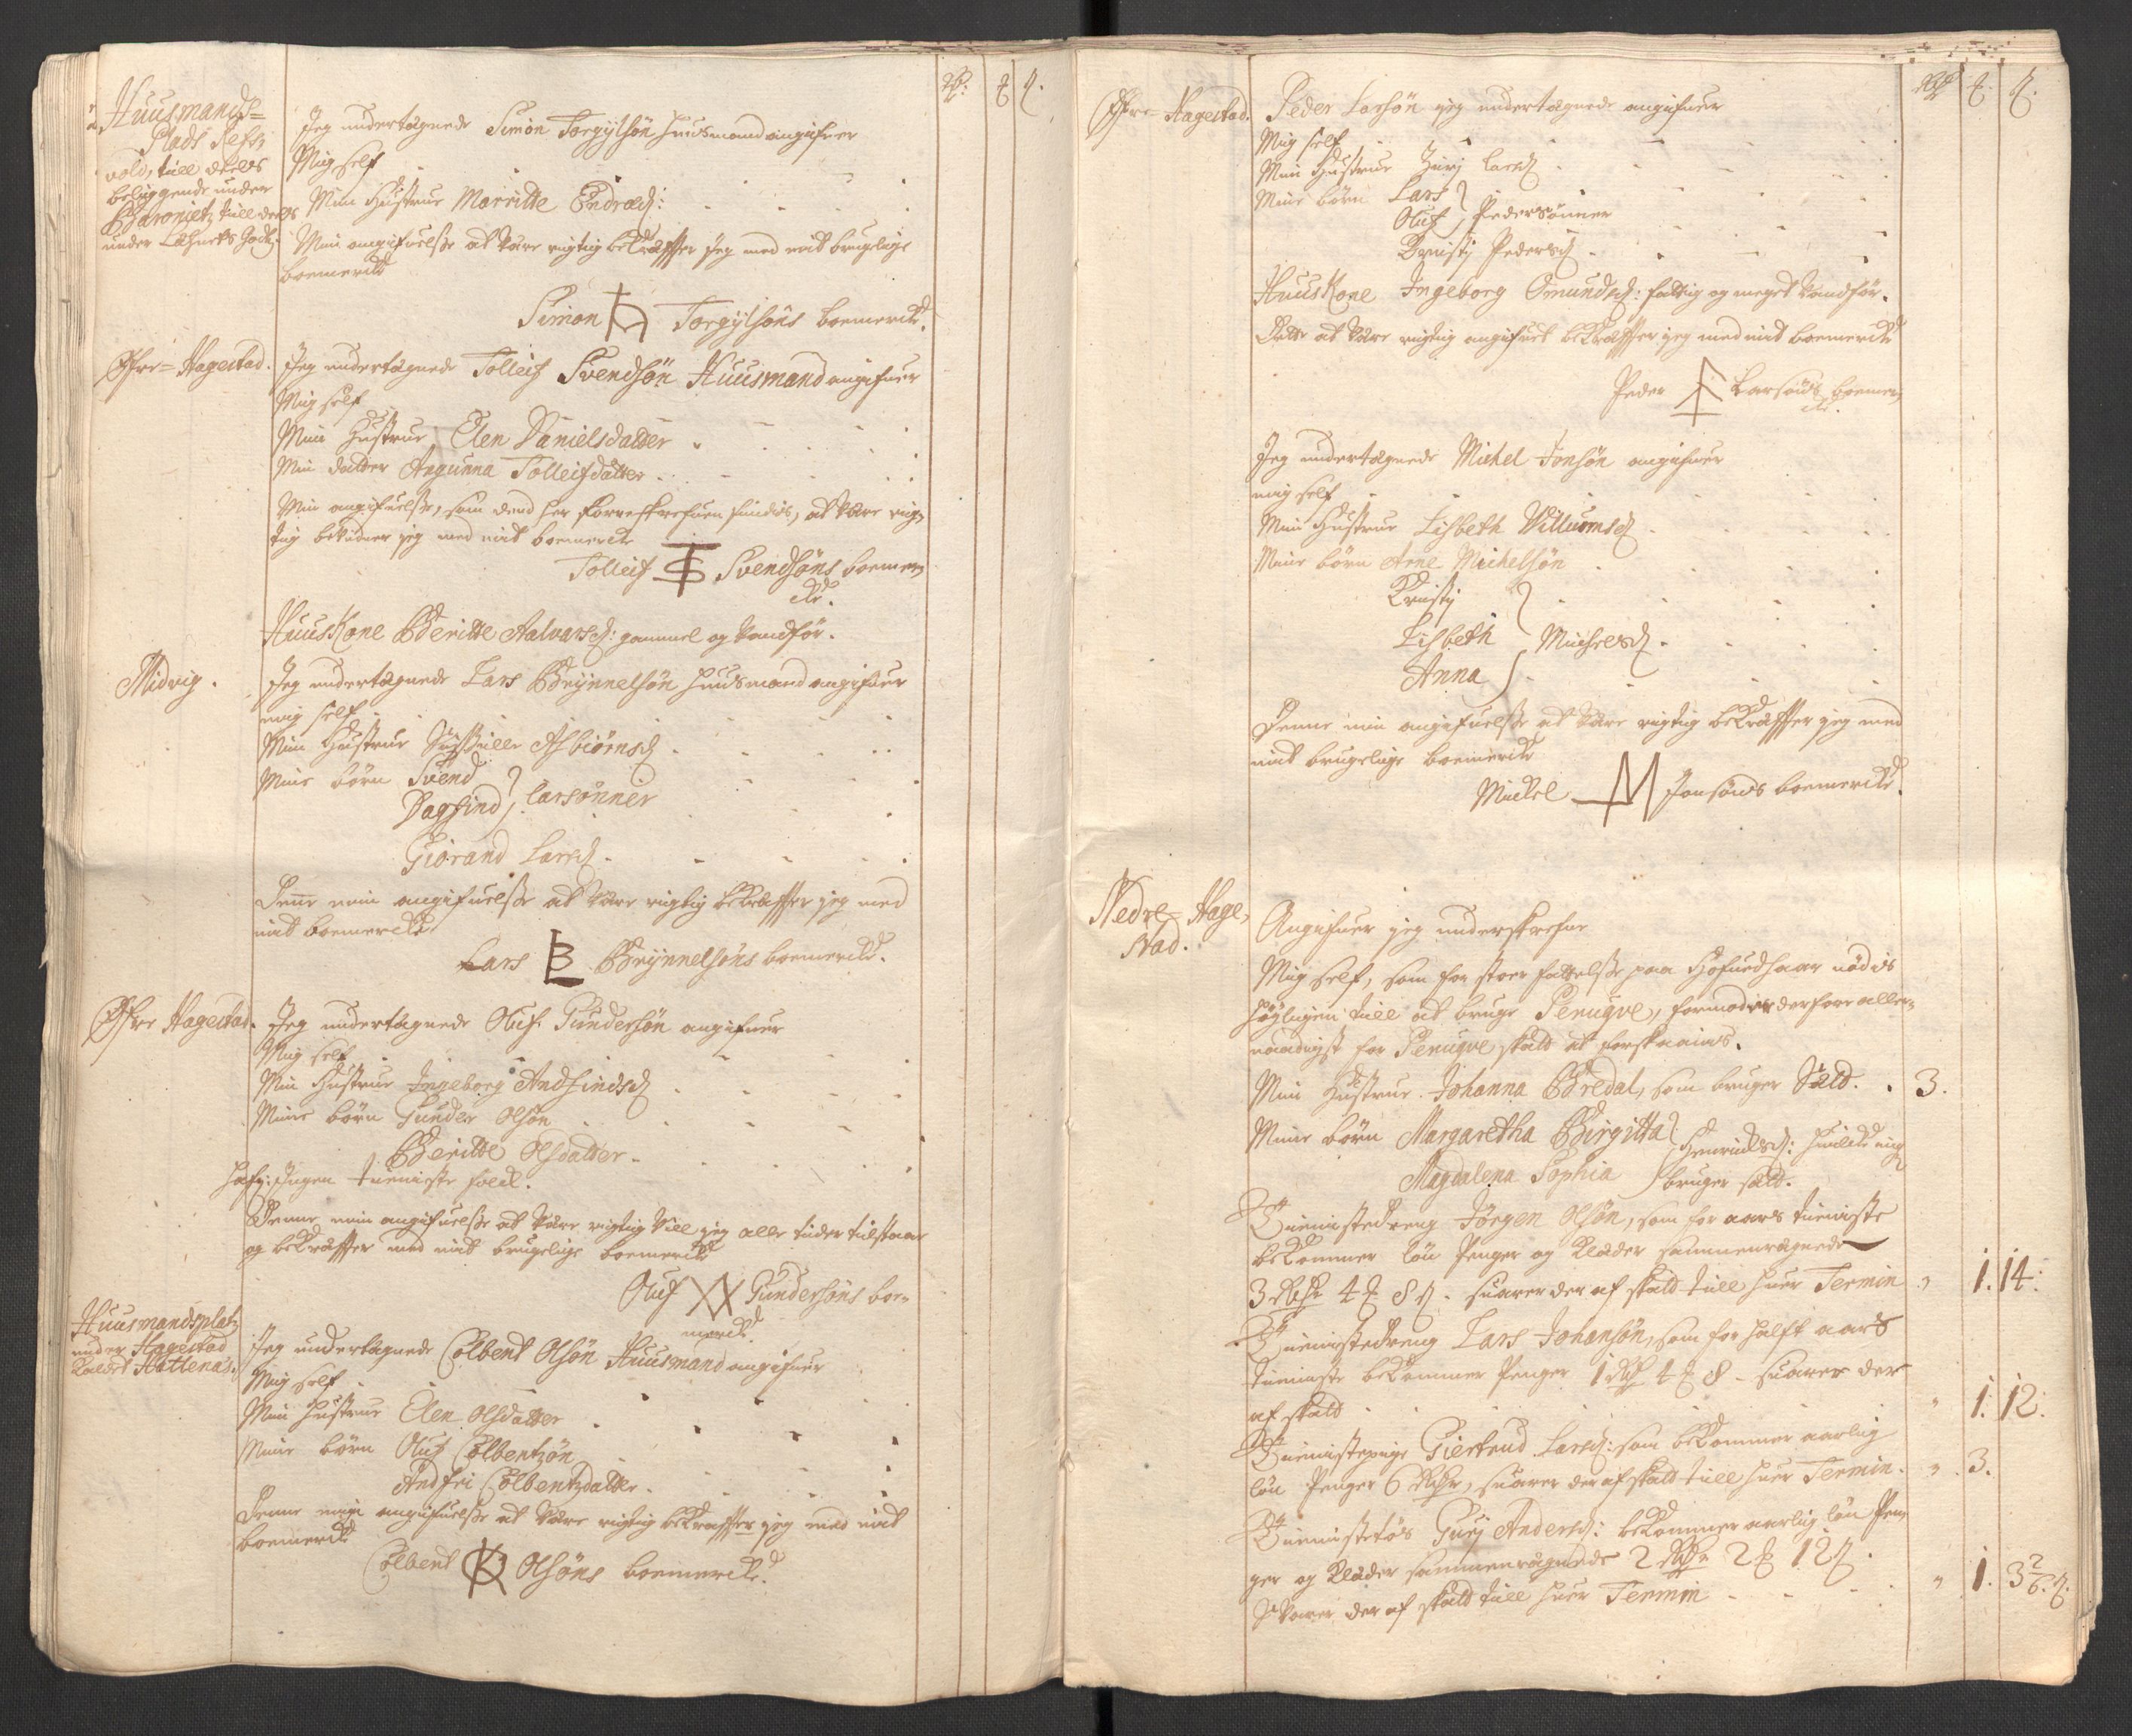 Rdr: ₻ ß.
Huusmands=
Plads Refs,
vold, till deels
beliggende under
Baroniet, till deels
under Læhnets Gods.
Jeg undertægnede Simon Torgylsøn huusmand angifuer
Mig self
Min Hustrue Marritte Endresd:
Min angifuelsse at være rigtig bekræffter Jeg med mit brugelige
boemerck
Simon Torgylsøns boemerck.
Øfre=Hagestad.
Jeg undertægnede Tolleif Svendsøn Huusmand angifuer
Mig self
Min Hustrue Elen Danielsdatter
Min datter Angunna Tolleifdatter
Min angifuelsse, som dend her forreskrefuen findes, at være rig,
tig bekiender jeg med mit boemerck
Tolleif Svendsøns boemer,
ck.
Huuskone Beritte Aalvarsd: gammel og vandfør.
Midvig.
Jeg undertægnede Lars Brynnelsøn huusmand angifuer
mig self
Min Hustrue Asbiørnsd
Mine børn Svend
Dagfind } Larsønner
Giørand Larsd
Denne min angifuelsse at være rigtig bekræffter jeg med
mit boemerck
Lars B Brynnelsøns boemerck.
Øfre Hagestad.
Jeg undertægnede Oluf Gundersøn angifuer
Mig self
Min Hustrue Ingeborg Andfindsd
Mine børn Gunder Olsøn
Beritte Olsdatter
hafr: Ingen tieniste folck.
Denne min angifuelsse at være rigtig vill jeg alle tider tilstaae
og bekræffter med mit brugelige boemerck
Oluf Gundersøns boe-
merck.
Huusmandsplatz
under Hagestad
kaldet Hattenæs.
Jeg undertægnede Colbent Olsøn Huusmand angifuer
Mig self
Min Hustrue Elen Olsdatter
Mine børn Oluf Colbentzøn
Andfri Colbentzdatter
Denne min angifuelsse at være rigtig bekræffter jeg med mit
boemerck
Colbent Olsøns boemerck.
Rdr ₻. ß.
Øfre=Hagestad.
Peder Larsøn jeg undertægnede angifuer
Mig self
Min Hustrue Zirj Larsd
Mine børn Lars
Oluf } Pedersønner
Kristj Pedersd
Huuskone Ingeborg Omundsd: fattig og meget vandfør.
Dette at være rigtig angifuet bekræffter jeg med mit boemerck
Peder Larsøns boemer,
ck.
Jeg undertægnede Michel Jonsøn angifuer
mig self
Min Hustrue Lisbeth Villumsd
Mine børn Arne Michelsøn
Kristj
Lisbeth } Michelsd
Anna
Denne min angifuelsse at være rigtig bekræffter jeg med
mit brugelige boemerck
Mickel M Jonsøns boemerck.
Nedre=Hage,
stad.
Angifuer jeg underskrefne
Mig self, som for stoer fattelsse paa Hofuedhaar nødis
høyligen till at bruge Peruqve, formoder derfore aller-
naadigst for Peruqve skatt at forskaanis.
Min Hustrue Johanna Bredal, som bruger Sætt. 3.
Mine børn Margaretha Birgitta
Magdalena Sophia } Henrichsd: huilcke ej
bruger sætt.
Tienistedreng Jørgen Olsøn, som for aars tieniste
bekommer løn Penger og Klæder sammenregnede
3 Rdr 4 ₻ 8 ß. suarer der af skatt till huer Termin " 1. 14:
Tienistedreng Lars Johansøn, som for halft aars
tieniste bekommer Penger 1 Rdr 4 ₻ 8 - suarer der
af skatt " 1. 12.
Tienistepige Giertrud Larsd: som bekommer aarlig
løn Penger 6 Rdr, suarer der af skatt till huer Termin. " 3.
Tienistetøs Gurj Andersd: bekommer aarlig løn Pen,
ger og Klæder sammenregnede 2 Rdr 2 ₻ 12 ß.
Svarer der af skatt till huer Termin " 1. 3 2/6. ß.